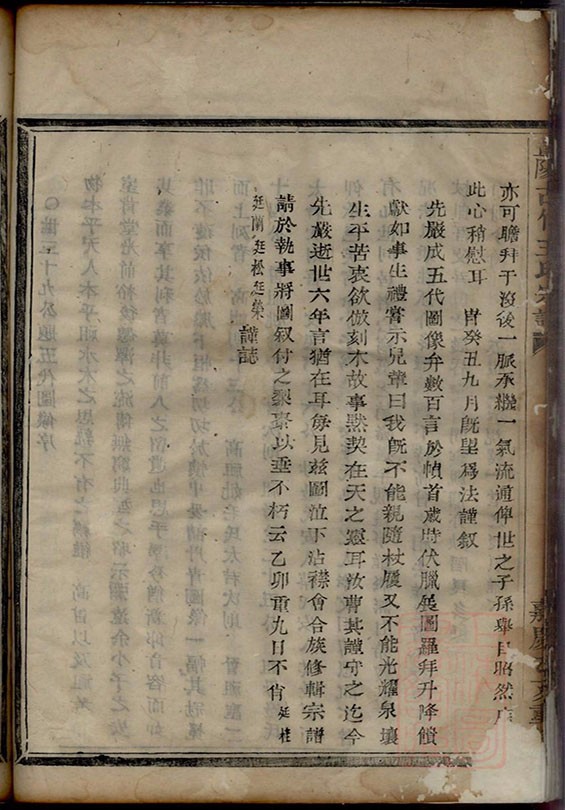 亦可瞻拜于沒後一脈承繼一氣流通俾世之子孫舉目昭然庶
此心稍慰耳　旹癸丑九月既望爲法謹叙
先嚴成五代圖像弁數百言於幀首歲時伏臘展圖羅拜升降饋
獻如事生禮嘗示兒輩曰我既不能親隨杖履又不能光耀泉壤
生平苦衷欲倣刻木故事黙契在天之靈耳汝曹其謹守之迄今
先嚴逝世六年言猶在耳每見茲圖泣下沾襟會合族修輯宗譜
請於執事將圖叙付之梨棗以垂不朽云乙卯重九日不肖延桂
延蘭延松延榮謹誌